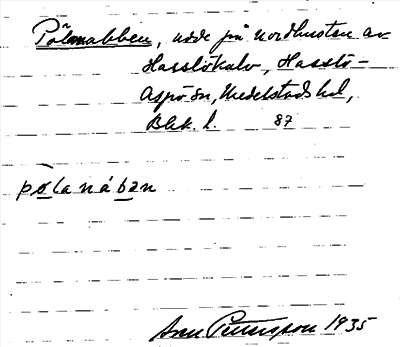 Pålanabben, udde på nordkusten av
Hasslökalv, Hasslö-
Aspö sn, Medelstads hd,
Blek. l. 87
pålanában
Pettersson 1935